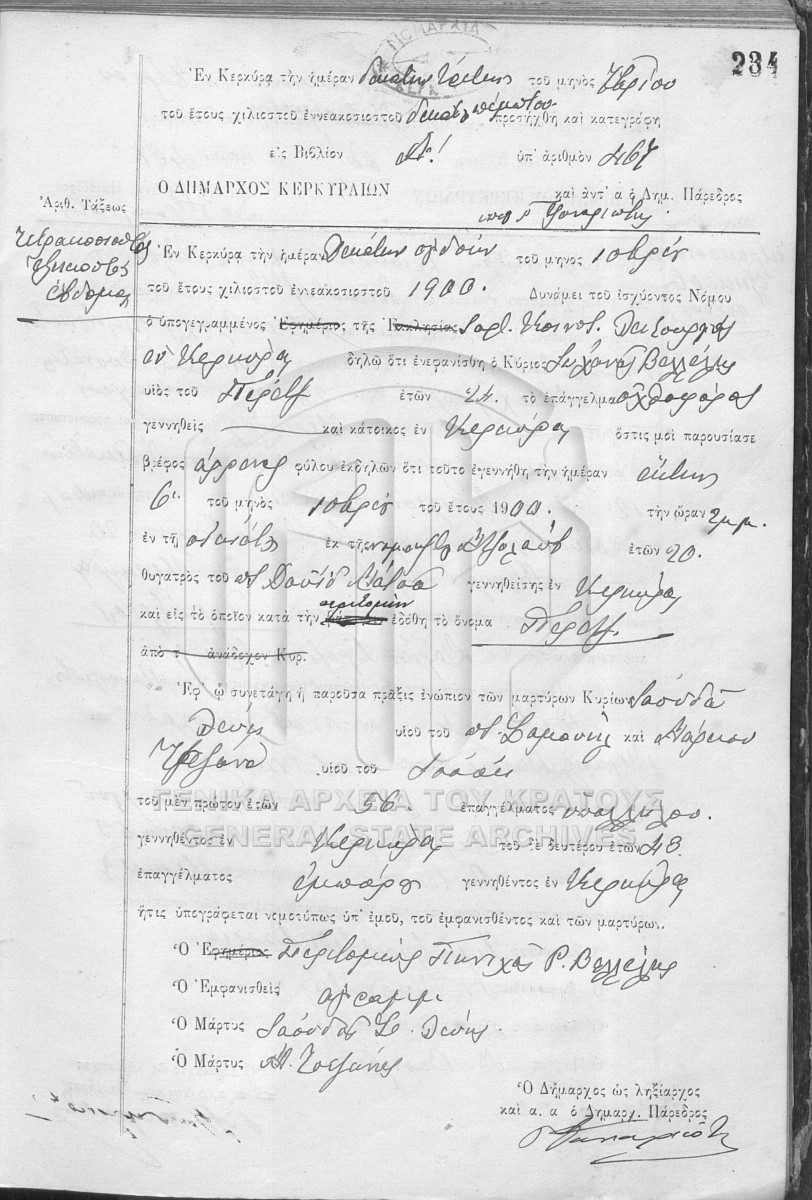 234
ΝΟΜΑΡΧΙΑ
Ἐν Κερκύρᾳ τὴν ἡμέραν τοῦ μηνὸς
τοῦ ἔτους χιλιοστοῦ ἐννεακοσιοστοῦ δεκάτου πέμπτου προσήχθη καὶ κατεγράφη
εἰς Βιβλίον ὑπ' ἀριθμὸν 467
Ο ΔΗΜΑΡΧΟΣ ΚΕΡΚΥΡΑΙΩΝ καὶ ἀντ' α ὁ Δημ. Πάρεδρος
Ἀριθ. Τάξεως
Τετρακοσιοστὸς
ἑξηκοστὸς
ἕβδομος
Ἐν Κερκύρᾳ τὴν ἡμέραν Δεκάτην ὀγδόην τοῦ μηνος 10βρίου
τοῦ ἔτους χιλιοστοῦ ἐννεακοσιοστοῦ 1900. Δυνάμει τοῦ ἰσχύοντος Νόμου
ὁ ὑπογεγραμμένος Ἐφημέριος τῆς Ἐκκλησίας Ἰσρ. Κοινοτ.
ἐν Κερκύρᾳ δηλῶ ὅτι ἐνεφανίσθη ὁ Κύριος Βελλέλης
υἱὸς τοῦ Περέτς ἐτῶν 24. τὸ ἐπάγγελμα ἀχθοφόρος
γεννηθεὶς καὶ κάτοικος ἐν Κερκύρᾳ ὅστις μοὶ παρουσίασε
βρέφος ἄρρενος φύλου ἐκδηλῶν ὅτι τοῦτο ἐγεννήθη τὴν ἡμέραν ἕκτην
6. τοῦ μηνὸς 10βρίου τοῦ ἔτους 1900. τὴν ὥραν 2 μ.μ.
ἐν τῇ ἐκ τῆς ἐτῶν 20.
θυγατρὸς τοῦ Δαυὶδ Μάτσα γεννηθείσης ἐν Κερκύρᾳ
καὶ εἰς τὸ ὁποῖον κατὰ τὴν περιτομὴν ἐδόθη τὸ ὄνομα Περέτς
ἀπὸ τ ἀνάδοχον Κυρ.
Ἐφ' ᾧ συνετάγη ἡ παροῦσα πρᾶξις ἐνώπιον τῶν μαρτύρων Κυρίων Ἰαουδᾶ
Λεύης υἱοῦ τοῦ π. Σαμουὴλ καὶ Μάρκου
Τζεζάνα υἱοῦ τοῦ Ἰωσὴφ
τοῦ μὲν πρώτου ἐτῶν 56. ἐπαγγέλματος ὑπαλλήλου.
γεννηθέντος ἐν Κερκύρᾳ τοῦ δὲ δευτέρου ἐτῶν 43
ἐπαγγέλματος ἐμπόρου γεννηθέντος ἐν Κερκύρᾳ
ἥτις ὑπογράφεται νομοτύπως ὑπ' ἐμοῦ, τοῦ ἐμφανισθέντος καὶ τῶν μαρτύρω..
Ὁ Ἐφημέριος Ρ. Βελλέλης
Ὁ Ἐμφανισθεὶς ἀγράμμ.
Ὁ Μάρτυς Ἰαουδᾶς Σ. Λεύης.
Ὁ Μάρτυς Μ. Τσεζάνας
Ὁ Δήμαρχος ὡς ληξίαρχος
καὶ α. α ὁ Δημαρχ. Πάρεδρος
ΓΕΝΙΚΑ ΑΡΧΕΙΑ ΤΟΥ ΚΡΑΤΟΥΣ
GENERAL STATE ARCHIVES